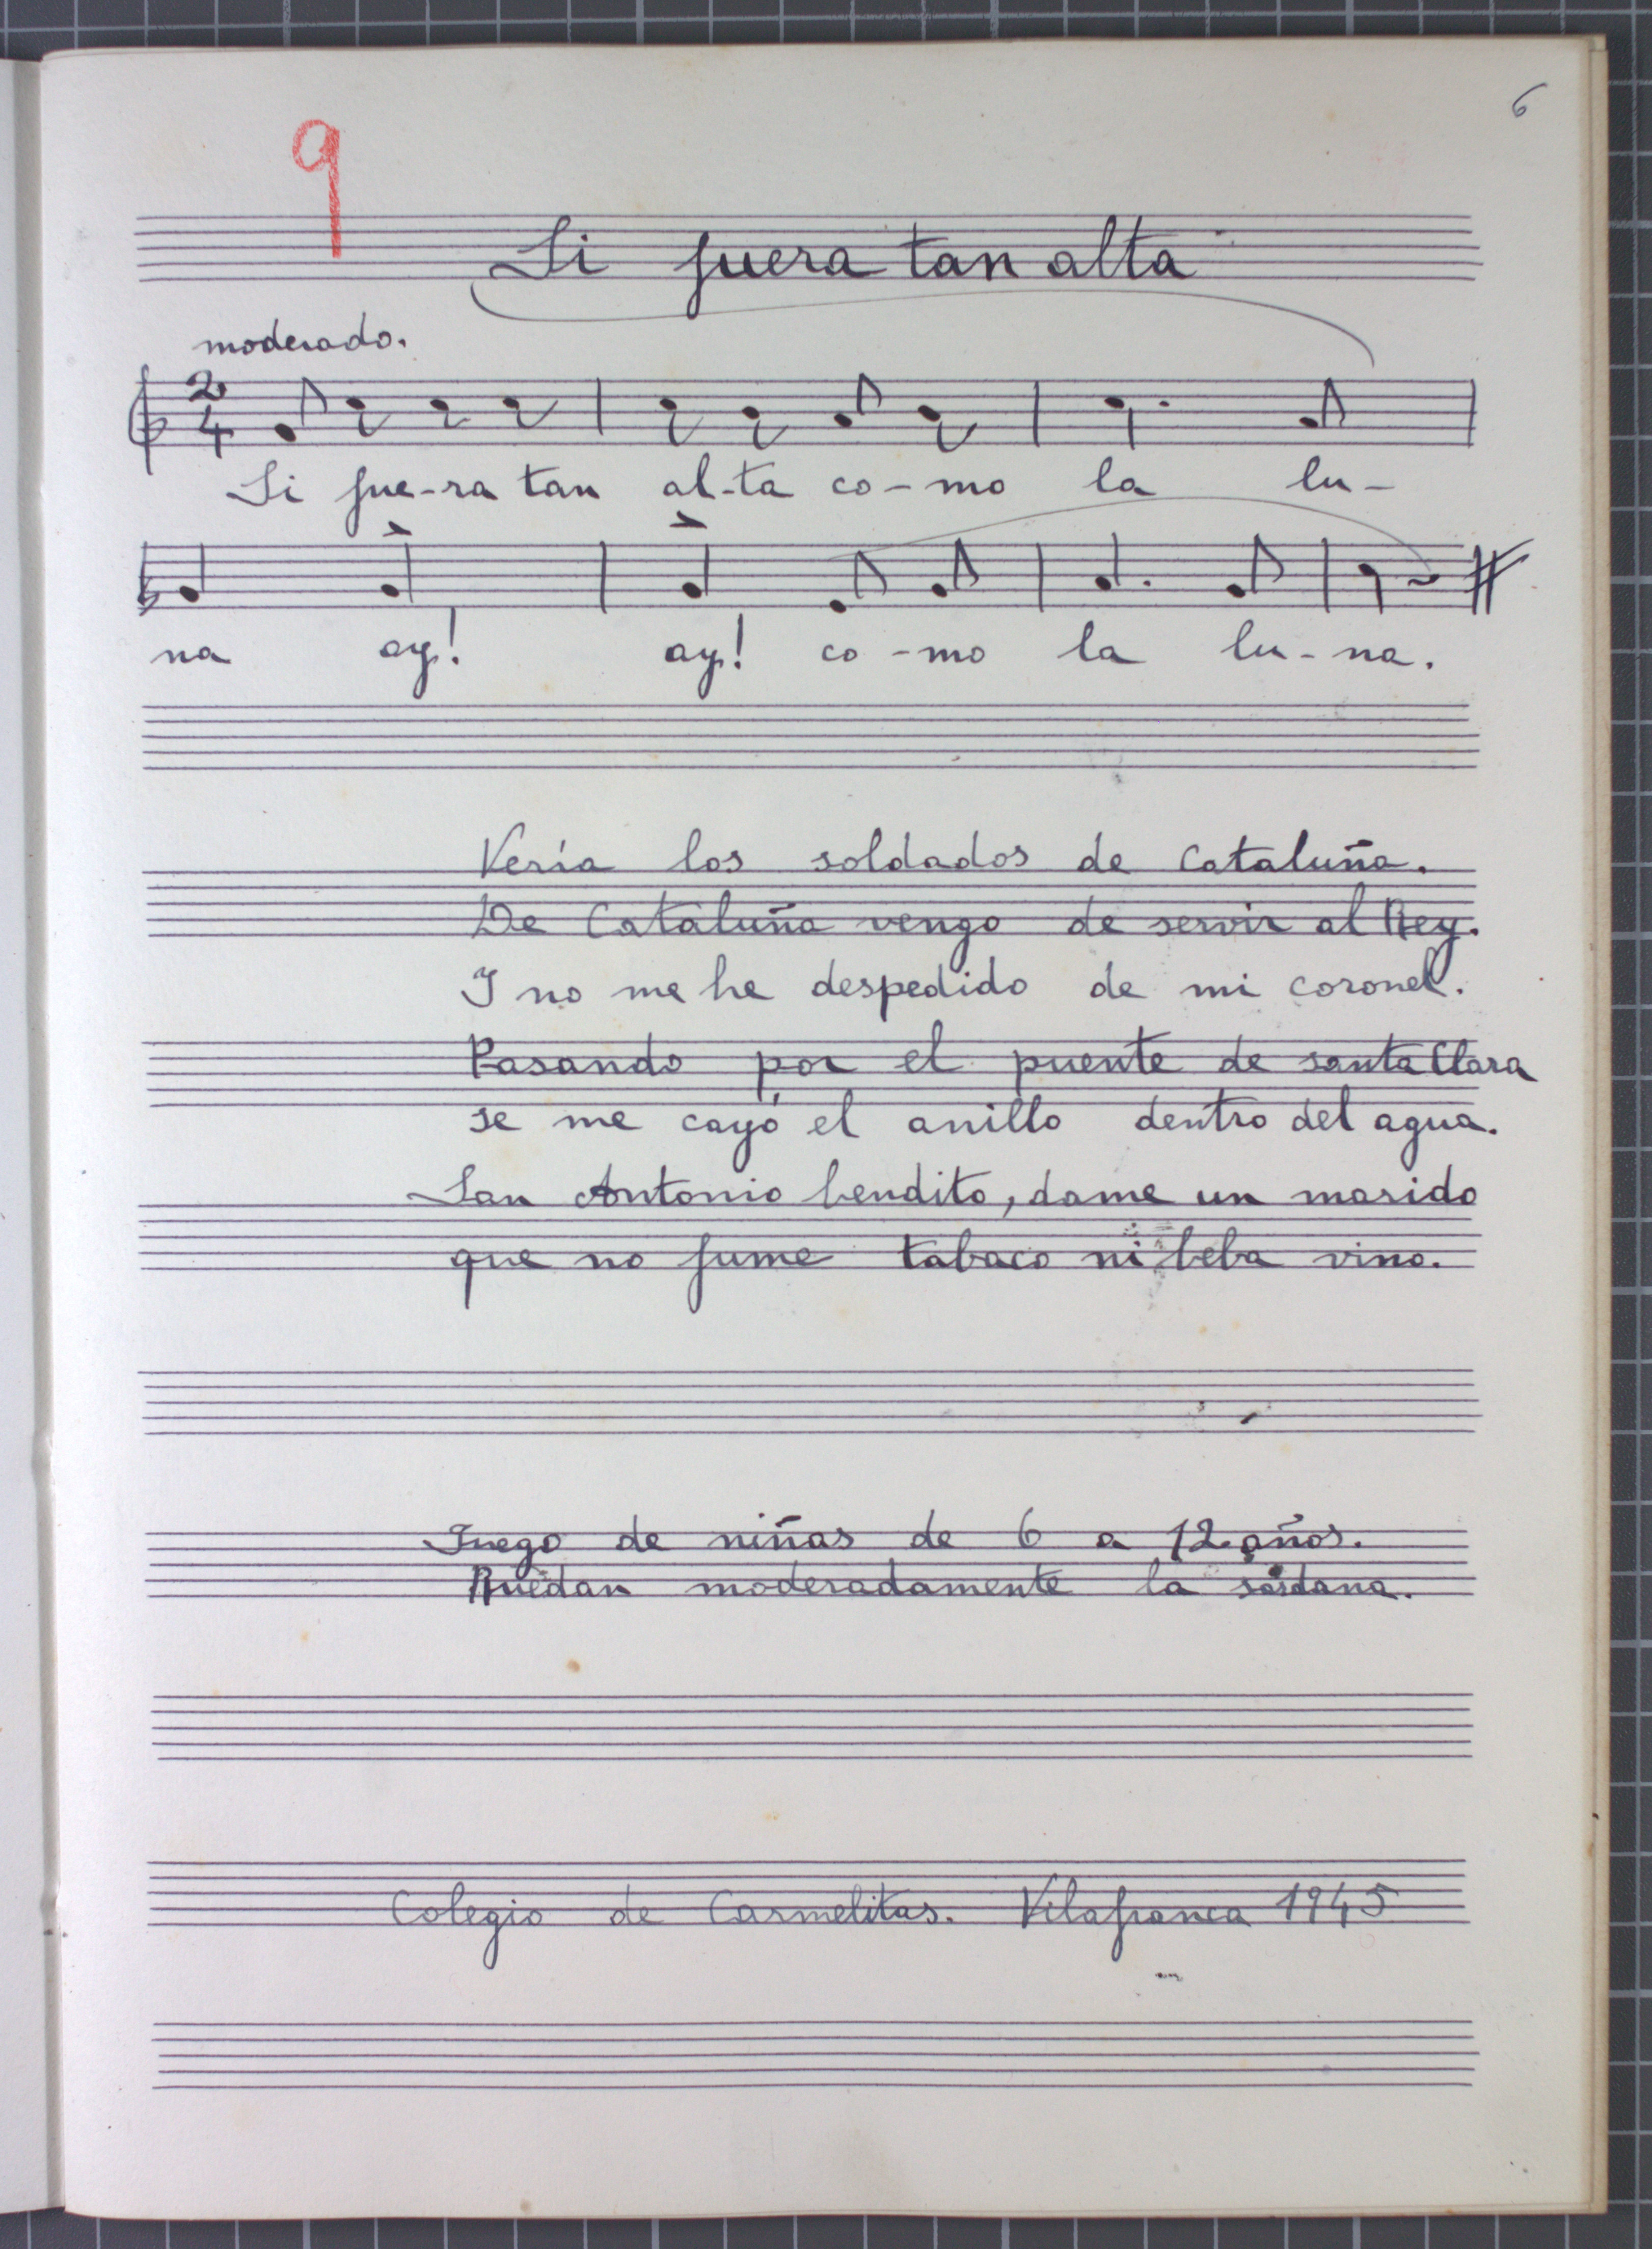 6
9
Si fuera tan alta
moderado.
2
4
Si fue-ra tan al-ta co-mo la lu-
na ay! ay! co-mo la lu-na.
Vería los soldados de Cataluña.
De Cataluña vengo de servir al Rey.
I no me he despedido de mi coronel.
Pasando por el puente de santa Clara
se me cayó el anillo dentro del agua.
San Antonio bendito, dame un marido
que no fume tabaco ni beba vino.
Juego de niñas de 6 a 12 años.
Ruedan moderadamente la sardana.
Colegio de Carmelitas. Vilafranca 1945